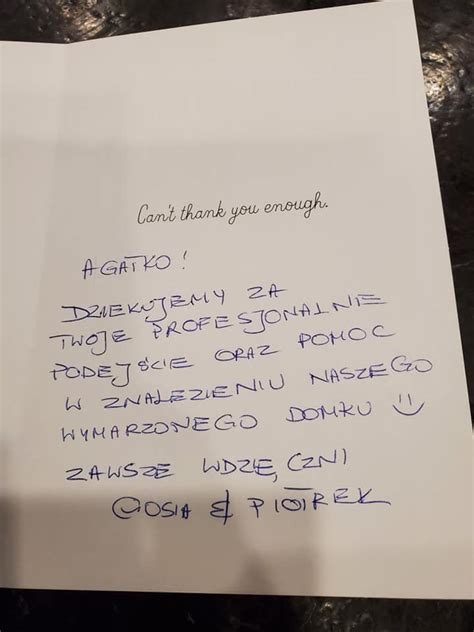 Can't thank you enough.
AGATKO!
DZIEKUJEMY ZA
TWOJE PROFESJONALNIE
PODEJŚCIE ORAZ POMOC
W ZNALEZIENIU NASZEGO
WYMARZONEGO DOMKU ☺
ZAWSZE WDZIĘCZNI
GOSIA & PIOTREK